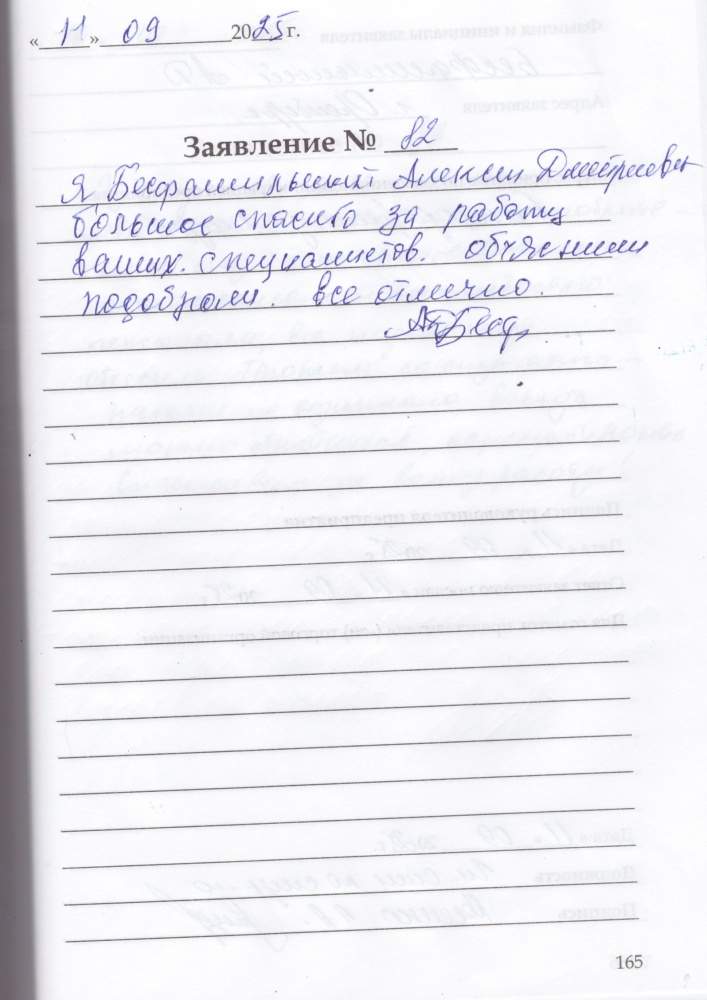 « 11 » 09 2025 г.
Заявление № 82
Я, Бесфамильный Алексей Дмитриевич
большое спасибо за работу
ваших. специалистов. обьяснили
подобрали. все отлично.
165